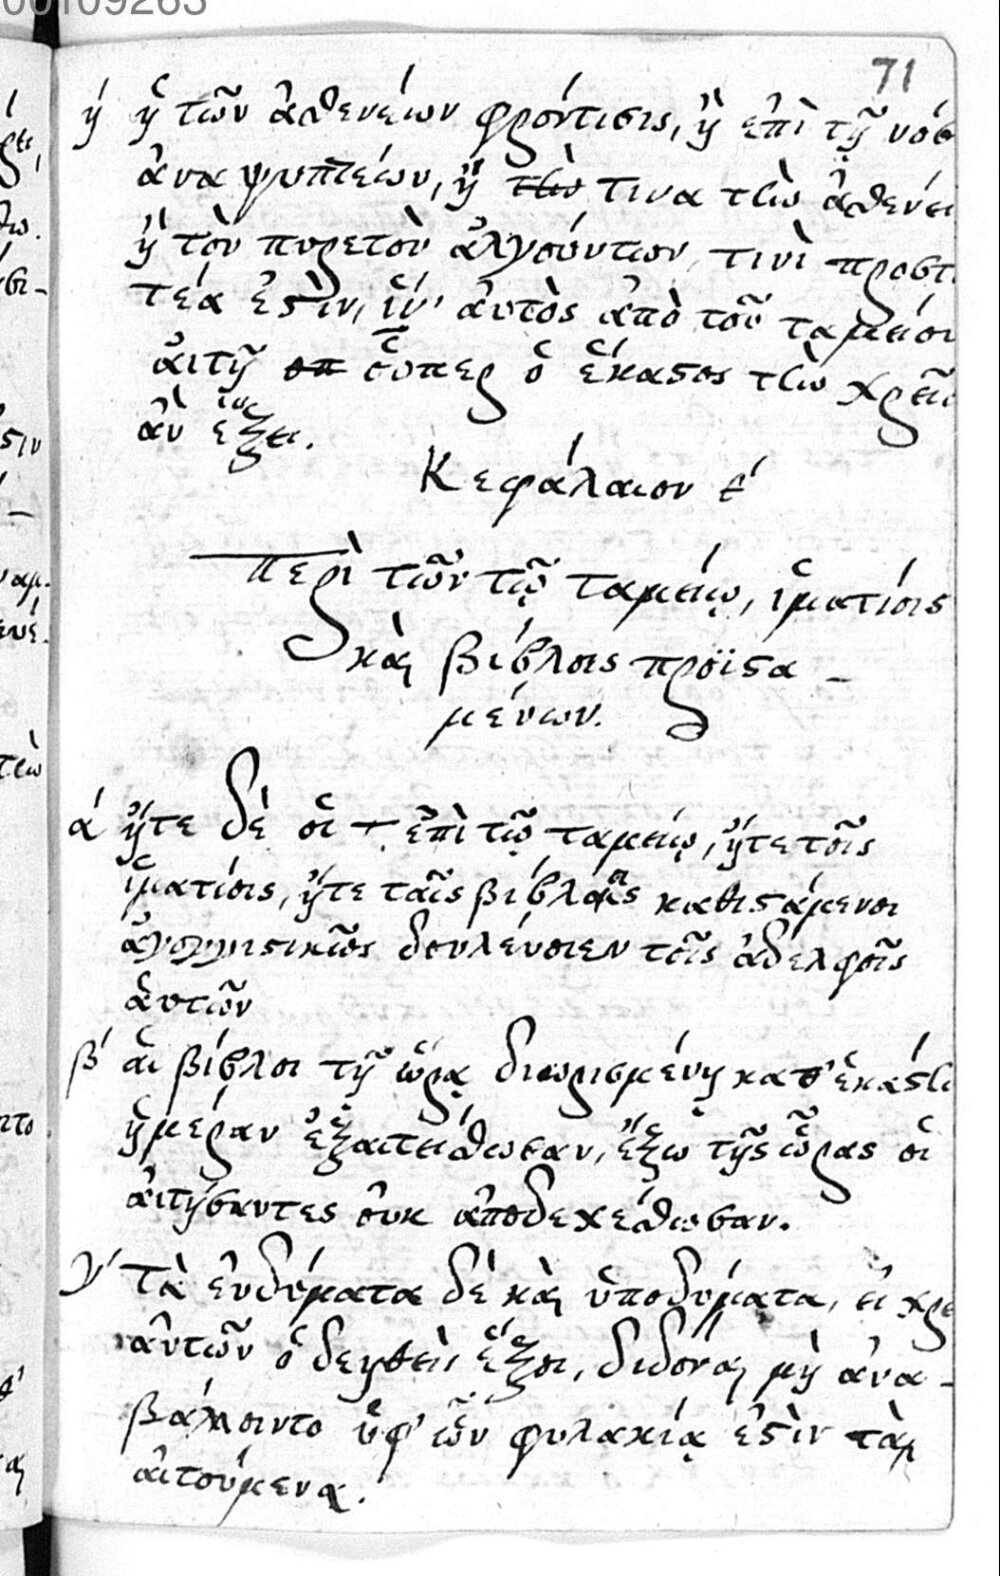 00109263
71
ή ἡ τῶν ἀσθενείων φρόντισις, ἢ ἐπὶ τῇ νόσ
ἀναψυπτείων, ἢ τὶω τινα τὶω ἀσθένει
ἢ τὸν πυρετὸν ἀλγούντων, τινὶ προστ
τέα ἐστὶν, ἵν' ἀυτὸς ἀπὸ τοῦ ταμείοι
ἀιτῇ οπ οὗπερ ὁ ἕκαστος τὶω χρεῖα
ἂν ἕξει.
Κεφάλαιον έ
Περὶ τῶν τῷ ταμείῳ, ἱματίοις
καὶ βίβλοις προϊστα-
μένων.
ά ἤτε δὲ οἱ ἐπὶ τῷ ταμείῳ, ἤτε τοῖς
ἱματίοις, ἤτε ταῖς βίβλοις καθιστάμενοι
δουλεύοιεν τοῖς ἀδελφοῖς
ἀυτῶν
β' ἁι βίβλοι τῇ ὥρᾳ διωρισμένῃ κατ' ἑκάστὶω
ἡμέραν ἐξαιτείσθωσαν, ἔξω τῆς ὥρας οἱ
ἀιτήσαντες ὀυκ ἀποδεχέσθωσαν.
γ' Τὰ ἐνδύματα δὲ καὶ ὑποδήματα, ἐι χρε
ἀυτῶν ὁ δεηθεὶς ἕξοι, διδόναι μὴ ἀνα-
βάλλοιντο ὑφ' ὧν φυλακίᾳ ἐστὶν τὰ
ἀιτούμενα.